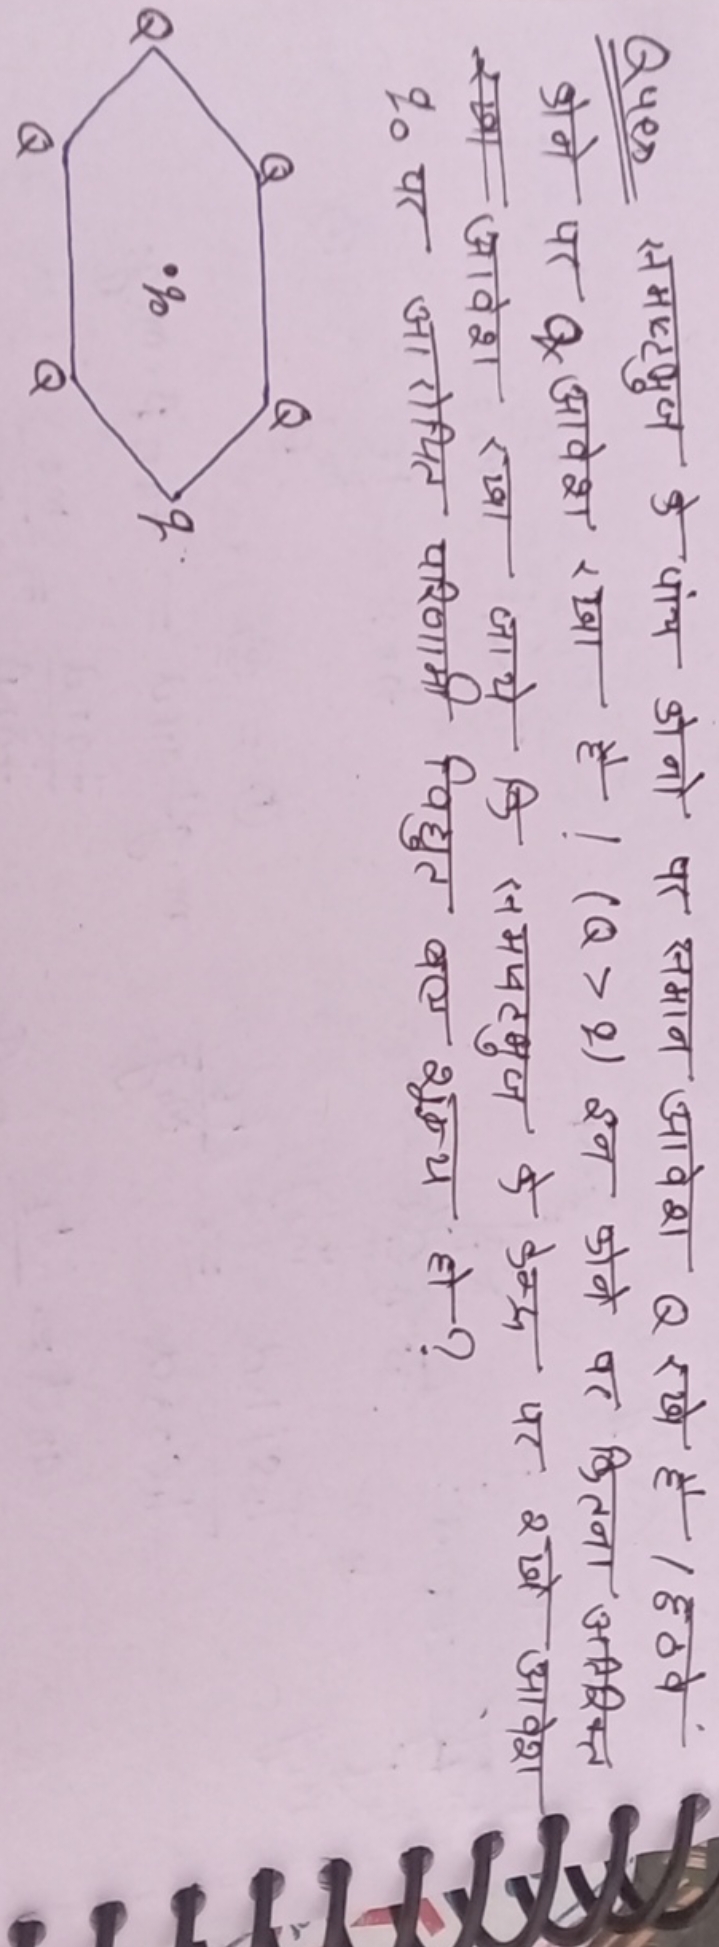 Ques समषट्भुज के पांच कोनो पर समान आवेश Q रखे है / छठवे
कोने पर q आवेश रखा है / (Q > q) इस कोने पर कितना अतिरिक्त
आवेश रखा जाये कि समषट्भुज के केन्द्र पर रखे आवेश
q₀ पर आरोपित परिणामी विधुत बल शून्य हो?
Q Q
Q
q₀
Q
Q
q